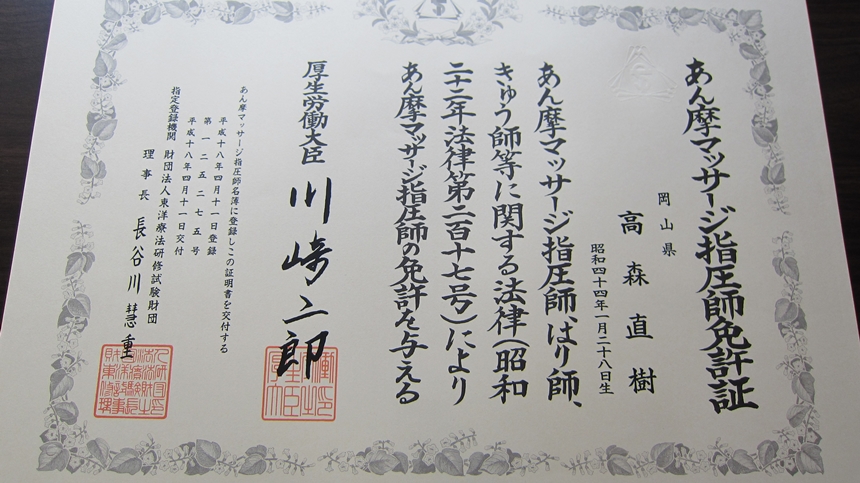 あん摩マッサージ指圧師免許証
岡山県
高森直樹
昭和四十四年一月二十八日生
あん摩マッサージ指圧師、はり師、
きゅう師等に関する法律（昭和
二十二年法律第二百十七号）により
あん摩マッサージ指圧師の免許を与える
厚生労働大臣 川崎二郎
あん摩マッサージ指圧師名簿に登録しこの証明書を交付する
平成十八年四月十一日登録
第一二五二七五号
平成十八年四月十一日交付
指定登録機関 財団法人東洋療法研修試験財団
理事長 長谷川慧重